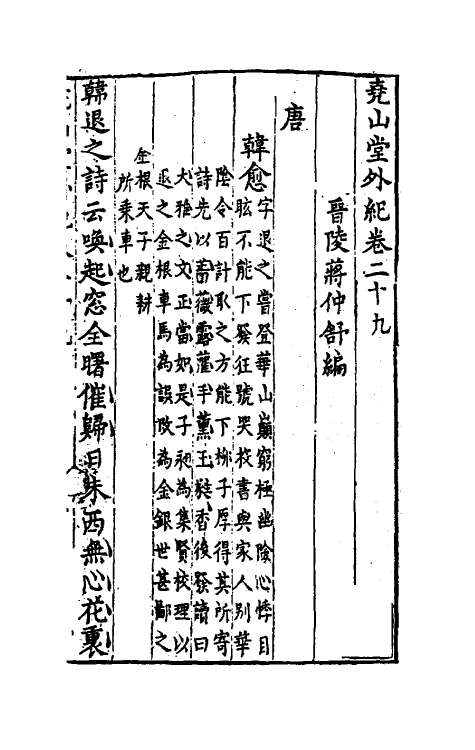 堯山堂外紀卷二十九
晉陵蔣仲舒編
唐
韓愈
字退之嘗登華山巔窮極幽險心悸目
眩不能下發狂號哭投書與家人別華
陰令百計取之方能下栁子厚得其所寄
詩先以薔薇露盥手薰玉蕤香後發讀曰
大雅之文正當如是子昶為集賢校理以
金根車馬為誤改為金銀世甚鄙之
金根天子親耕
所乘車也
韓退之詩云喚起窓全曙催歸日未西無心花裏